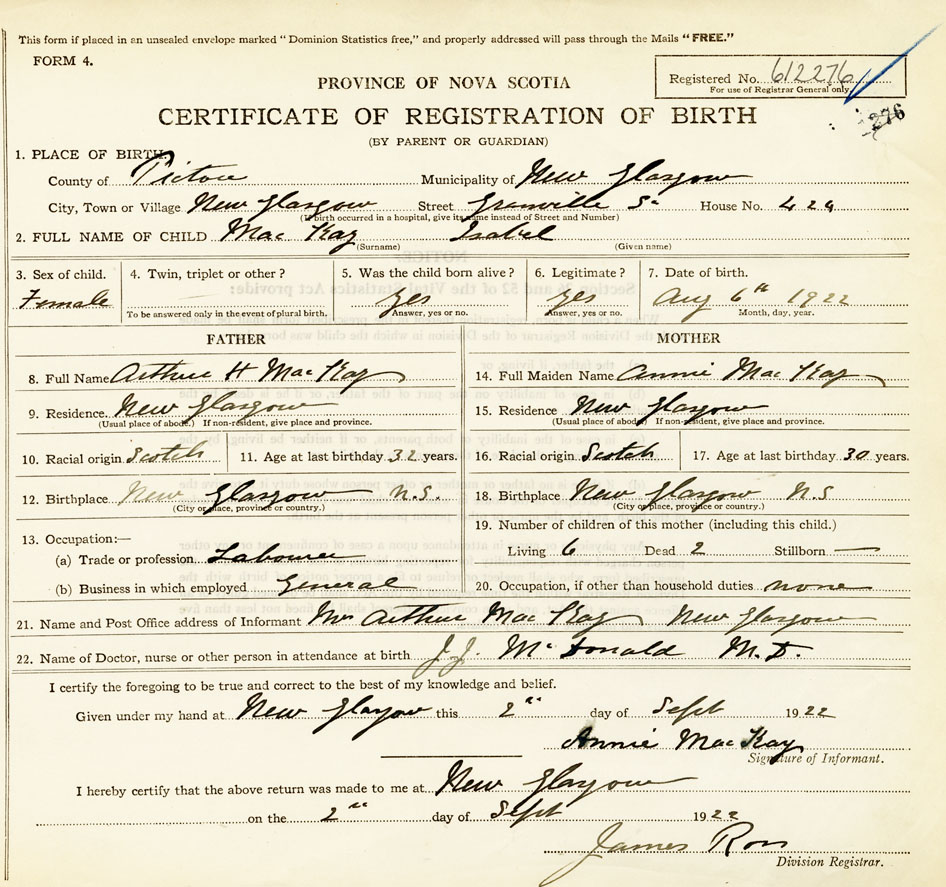 This form if placed in an unsealed envelope marked "Dominion Statistics free," and properly addressed will pass through the Mails "FREE."
FORM 4.
PROVINCE OF NOVA SCOTIA
Registered No. 612276
For use of Registrar General only.
276
CERTIFICATE OF REGISTRATION OF BIRTH
(BY PARENT OR GUARDIAN)
1. PLACE OF BIRTH.
County of Pictou Municipality of New Glasgow
City, Town or Village New Glasgow Street Granville St House No. 424
(If birth occurred in a hospital, give its name instead of Street and Number)
2. FULL NAME OF CHILD MacKay Isabel
(Surname) (Given name)
3. Sex of child. 4. Twin, triplet or other? 5. Was the child born alive? 6. Legitimate? 7. Date of birth.
Female yes yes Aug 6th 1922
To be answered only in the event of plural birth. Answer, yes or no. Answer, yes or no. Month, day, year.
FATHER MOTHER
8. Full Name Arthur H MacKay 14. Full Maiden Name Annie MacKay
9. Residence. New Glasgow 15. Residence New Glasgow
(Usual place of abode.) If non-resident, give place and province. (Usual place of abode) If non-resident, give place and province.
10. Racial origin Scotch 11. Age at last birthday 32 years. 16. Racial origin Scotch 17. Age at last birthday 30 years.
12. Birthplace New Glasgow N.S. 18. Birthplace New Glasgow N S
(City or place, province or country.) (City or place, province or country.)
19. Number of children of this mother (including this child.)
13. Occupation:—
(a) Trade or profession Labourer Living 6 Dead 2 Stillborn —
(b) Business in which employed General 20. Occupation, if other than household duties none
21. Name and Post Office address of Informant Mrs Arthur MacKay New Glasgow
22. Name of Doctor, nurse or other person in attendance at birth J.J. McDonald M.D.
I certify the foregoing to be true and correct to the best of my knowledge and belief.
Given under my hand at New Glasgow this 2nd day of Sept 1922
Annie MacKay
Signature of Informant.
I hereby certify that the above return was made to me at New Glasgow
on the 2nd day of Sept 1922
James Ross
Division Registrar.